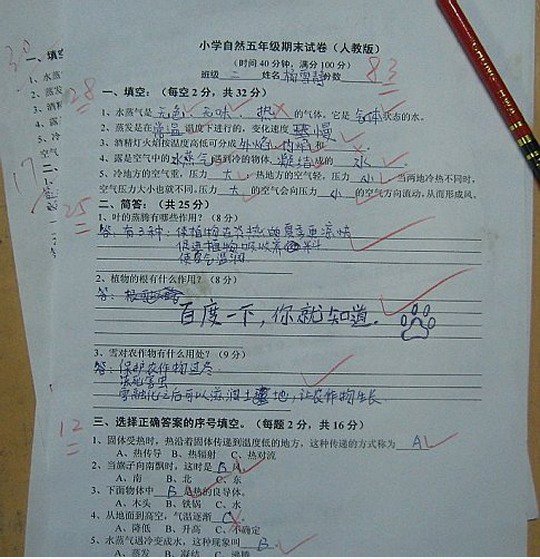 小学自然五年级期末试卷（人教版）
（时间40分钟，满分100分）
班级 二 姓名 杨雪诗 分数 83
28
一、填空：（每空2分，共32分）
1、水蒸气是 无色 、无味 、 热 的气体，它是 气体 状态的水。
2、蒸发是在 常温 温度下进行的，变化速度 慢
3、酒精灯火焰按温度高低可分成 外焰 、内焰 和
4、露是空气中的 水蒸气 遇到冷的物体， 凝结 成的 水 。
5、冷地方的空气重，压力 大 ；热地方的空气轻，压力 小 。当两地冷热不同时，
空气压力大小也就不同，压力 大 的空气会向压力 小 的空气方向流动，从而形成风。
25
二、简答：（共25分）
1、叶的蒸腾有哪些作用？（8分）
答：有3种：使植物在炎热的夏季更凉快
促进植物吸收养料
使空气湿润
2、植物的根有什么作用？（8分）
答：根
百度一下，你就知道.
3、雪对农作物有什么用处？（9分）
答：保护农作物过冬
冻死害虫
雪融化之后可以滋润土地，让农作物生长.
12
三、选择正确答案的序号填空。（每题2分，共16分）
1、固体受热时，热沿着固体传递到温度低的地方，这种传递的方式称为 A
A、热传导 B、热辐射 C、热对流
2、当旗子向南飘时，这时是 B 风。
A、南 B、北 C、东
3、下面物体中 B 是热的良导体。
A、木头 B、铁锅 C、水
4、从地面到高空，气温逐渐 C 。
A、降低 B、升高 C、不确定
5、水蒸气遇冷变成水，这种现象叫 B 。
A、蒸发 B、凝结 C、沸腾